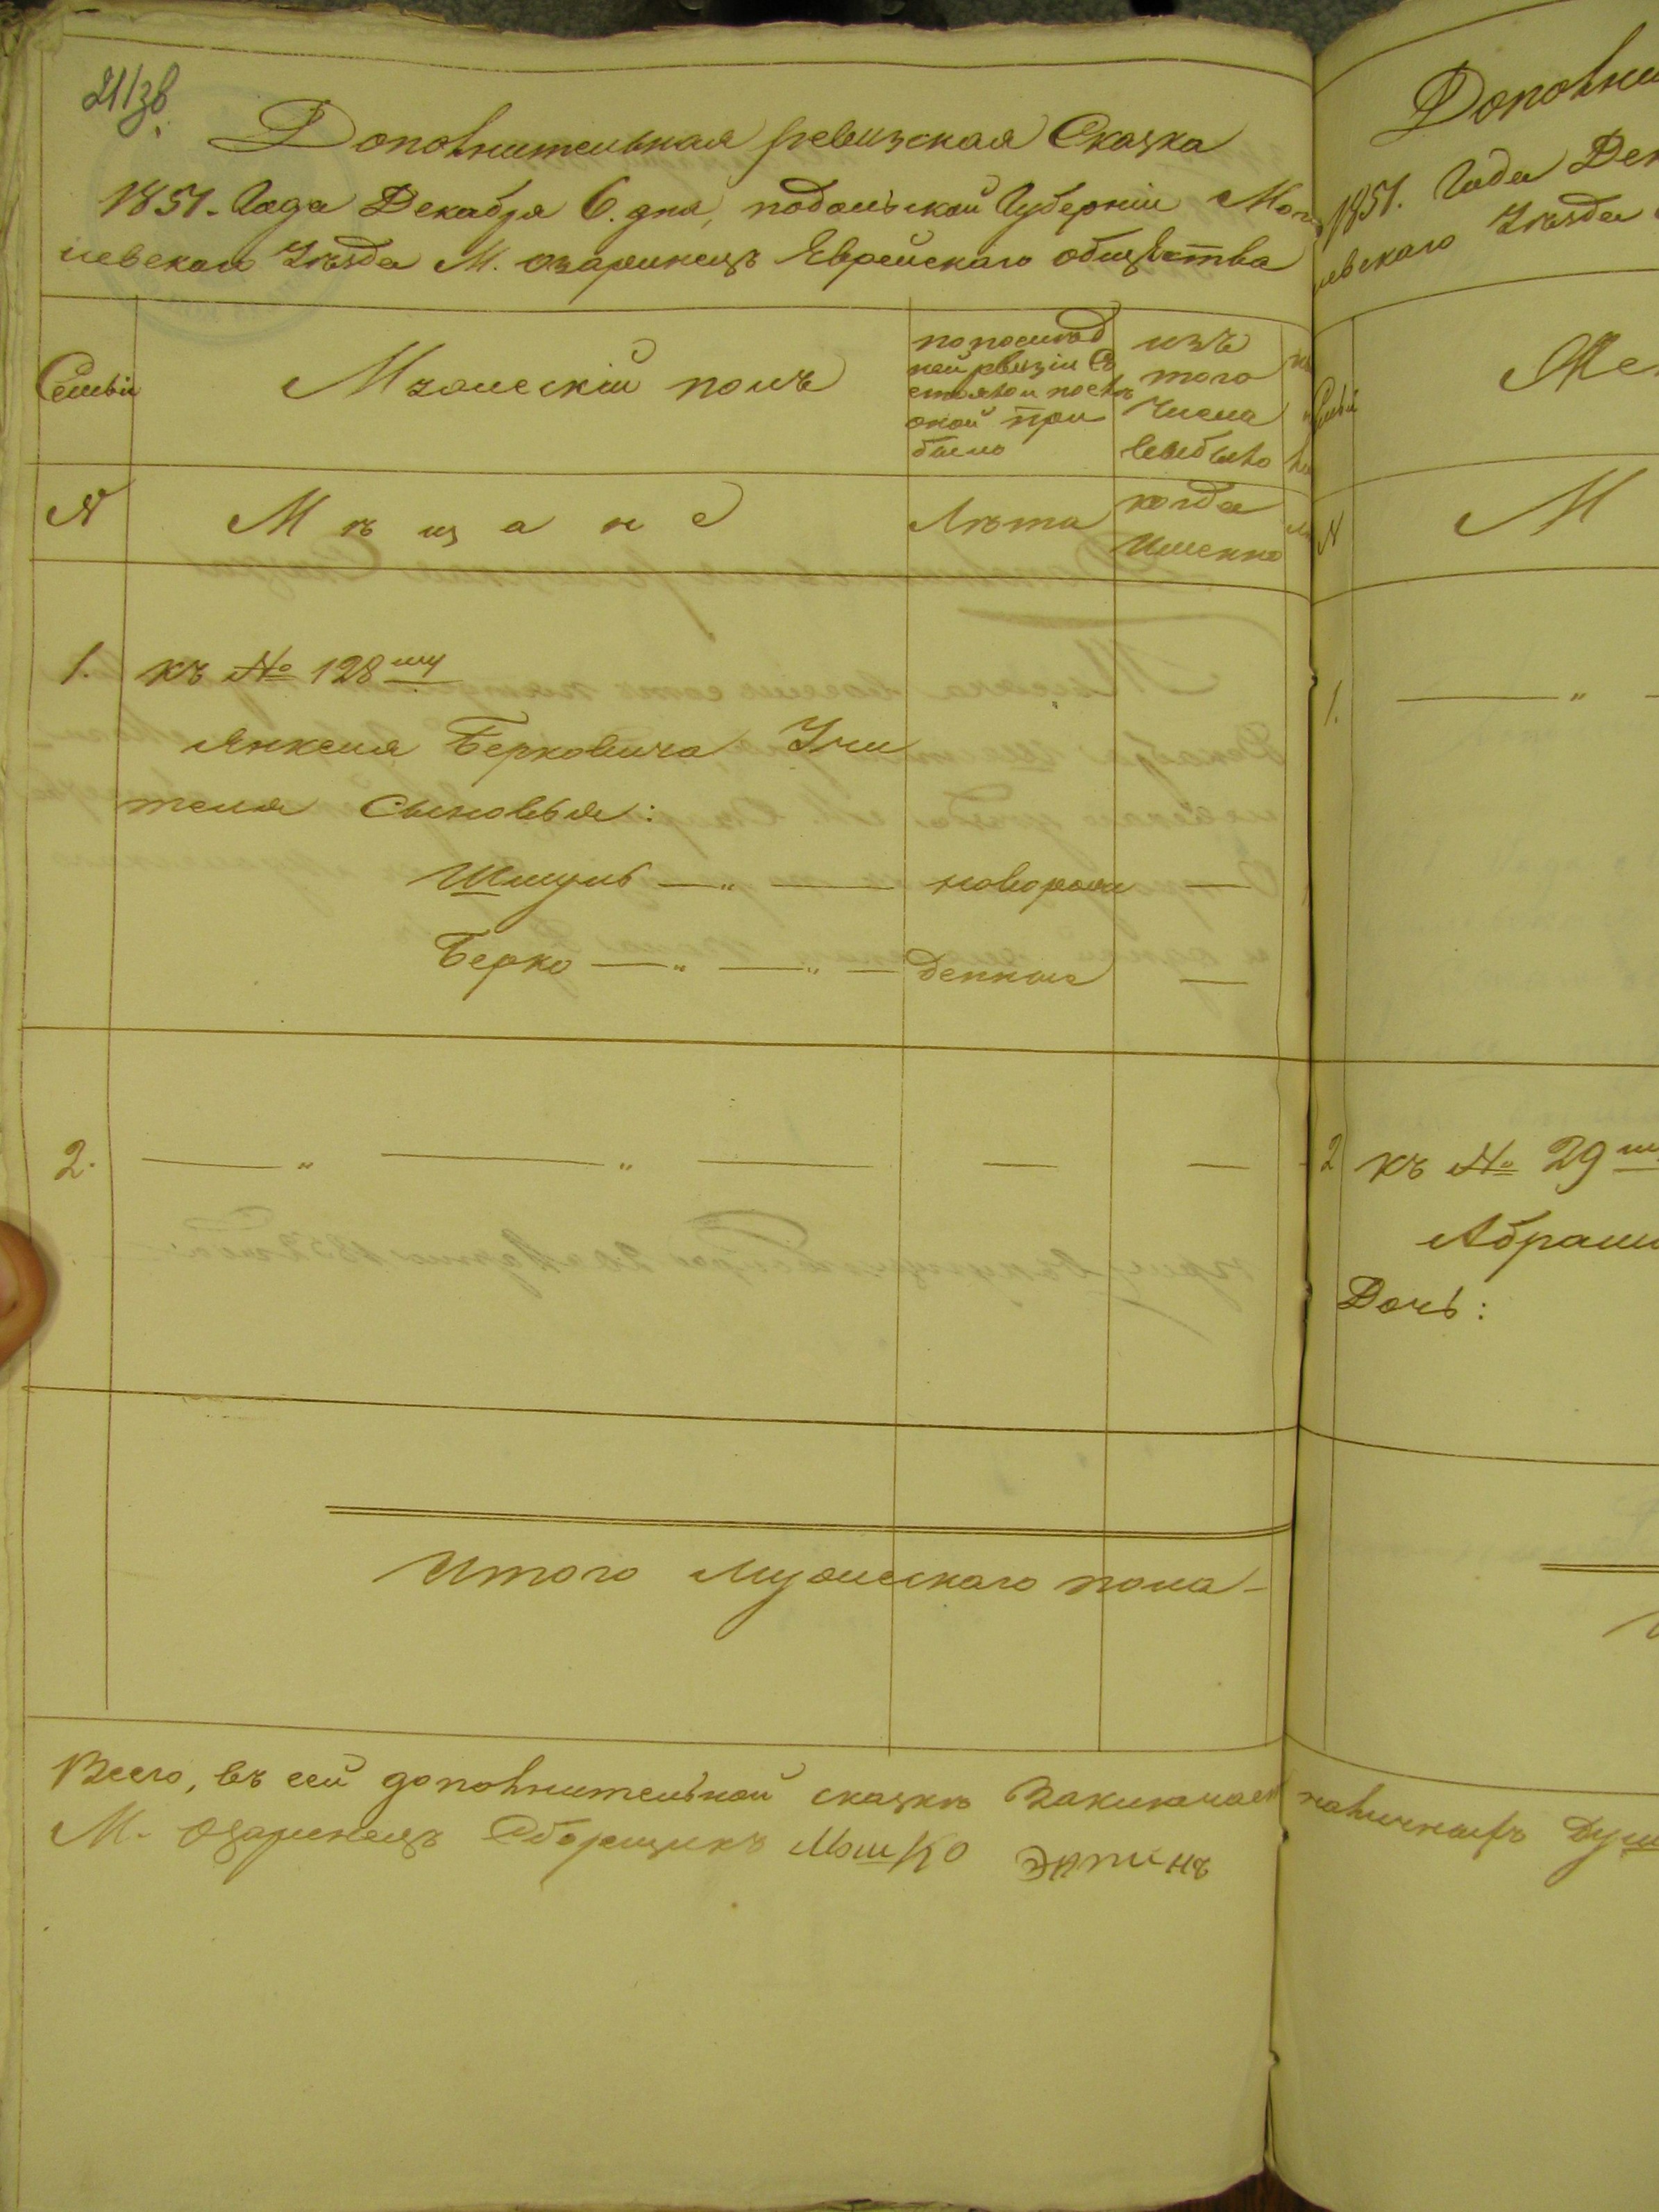 211зв.
Дополнительная ревизская Сказка
1851. Года Декабря 6. дня, подольской Губерніи Моги
левскаго Уѣзда М. озаринецъ Еврейскаго общества
Семьи
Мзжескій полъ
по послѣд
ней ревизіи Со
стояло и послѣ
оной при
было
изъ
того
Числа
выбыло
№
Мѣщане
Лѣта
когда
Именно
1. къ № 128му
Янкеля Берковича Учи
теля Сыновья:
Шмуль — " — новорож —
Берко — " — " — денные —
2. — " — " — — —
Итого Мужескаго пола -
Всего, въ сей дополнительной сказкѣ Заключает
М. Озаринецъ Сборщикъ Мошко
Дополни
1851. Года Дек
левскаго Уѣзда
Семьи
Жен
№
М
1. — "
2 къ № 29му
Абрам
Дочь:
наличныхъ Душ